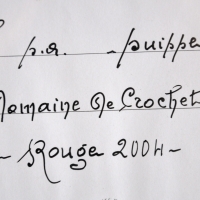 p.r. puippe
Domaine De Crochet
- Rouge 2004 -